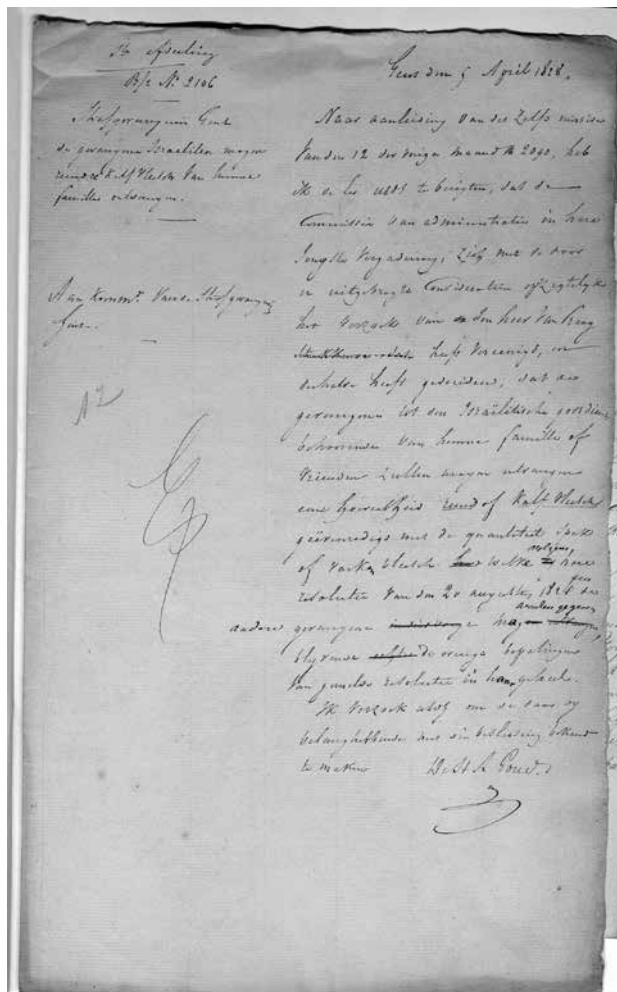 Afdeeling
B/2 No 2106
Gend den 5 April 1828.
Strafgevangenis Gent
de gevangene Israeliten mogen
rund & Kalf Vleesch van hunne
familie ontvangen.
Aan Komm. van de Strafgevang.
Gent.
12
Naar aanleiding van des Zelfs missive
van den 12 der vorige maand No 2090, heb
ik de eer te berigten, dat de
Commissie van administratie in hare
Jongste Vergadering, Zich met de door
u uitgebragte Consideratien opzigtelijk
het verzoek van den heer Van
heeft Vereenigd, en
heeft , dat de
gevangenen tot den Israëlitische
behoorende van hunne familie of
Vrienden zullen mogen ontvangen
eene hoeveelheid rund of Kalf Vleesch
geëvenredigd met de quantiteit Spek
of Varken Vleesch welke volgens hare
resolutie van den 20 augustus, de
andere gevangene mag worden gegeven,
blijvende de overige bepalingen
van gemelde resolutie in haar geheel.
Ik Verzoek alzoo om de daar bij
belanghebbende met die beslissing bekend
te maken
De St. A. Gouv.